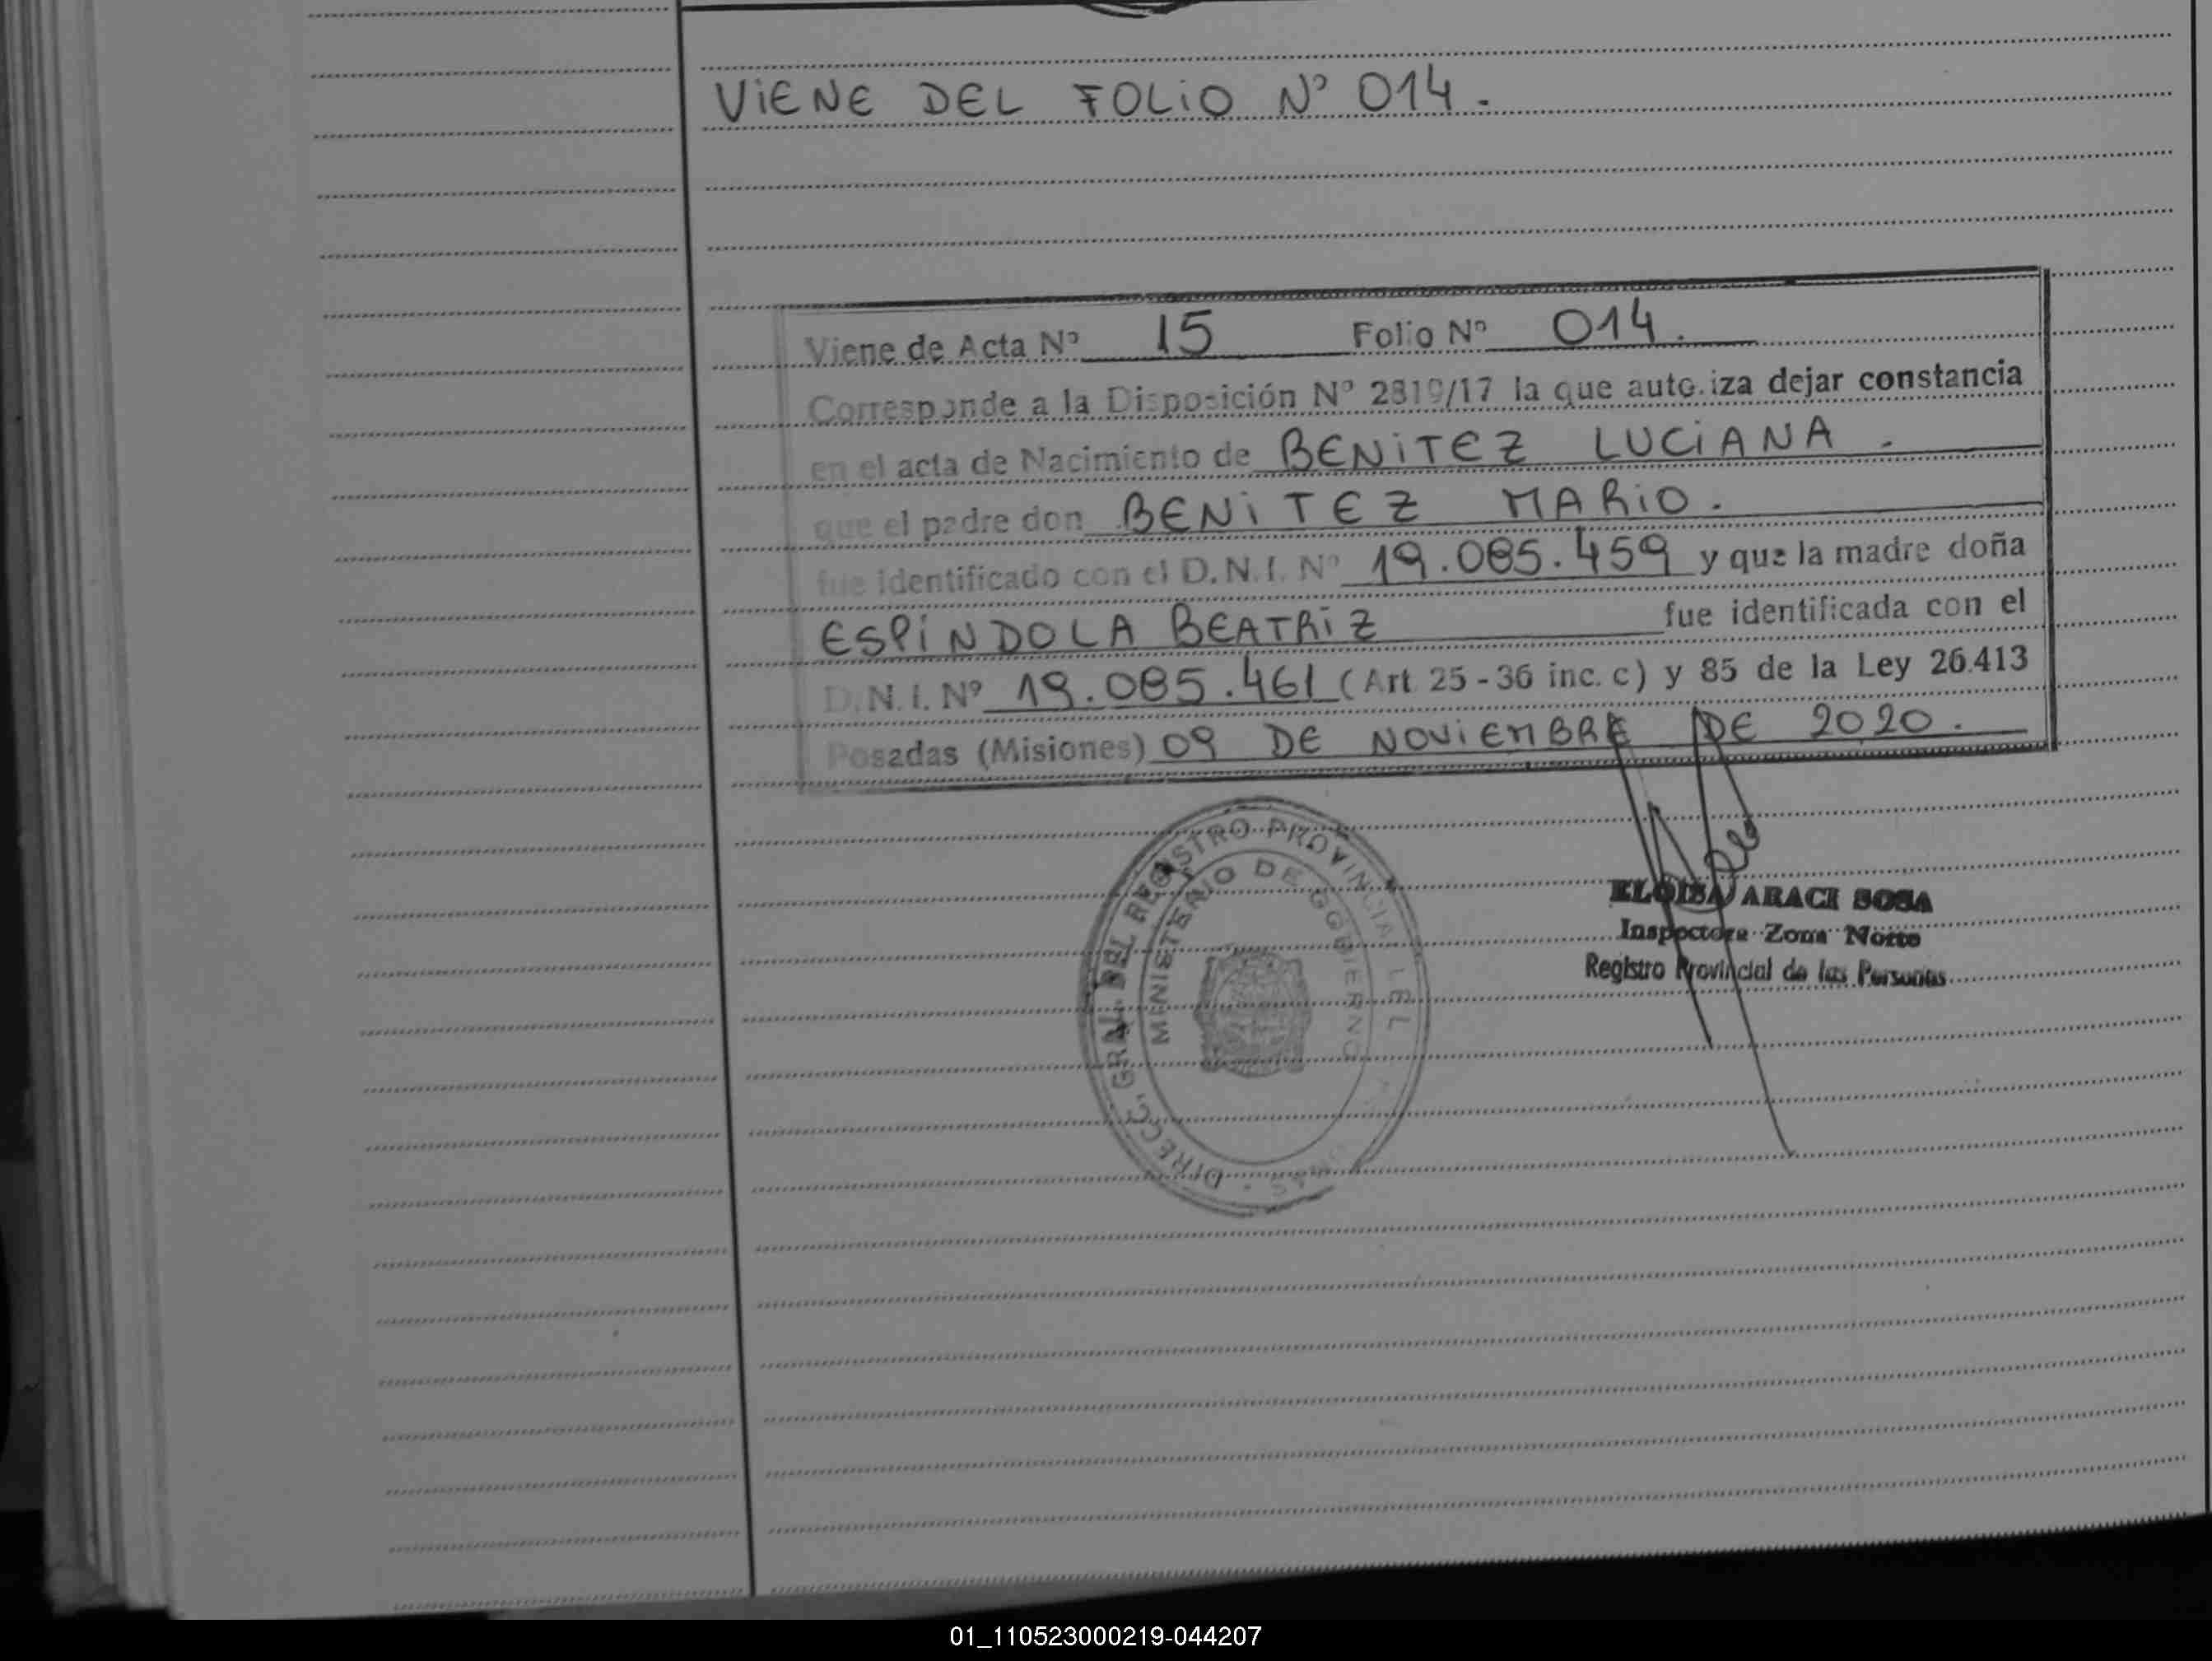 VIENE DEL FOLIO Nº 014.
Viene de Acta Nº 15 Folio Nº 014.
Corresponde a la Disposición Nº 2819/17 la que autoriza dejar constancia
en el acta de Nacimiento de BENITEZ LUCIANA.
que el padre don BENITEZ MARIO.
fue identificado con el D.N.I. Nº 19.085.459 y que la madre doña
ESPINDOLA BEATRIZ fue identificada con el
D.N.I. Nº 19.085.461 (Art 25 - 36 inc. c) y 85 de la Ley 26.413
Posadas (Misiones) 09 DE NOVIEMBRE DE 2020.
DIRECC. GRAL. DEL REGISTRO PROVINCIAL
MINISTERIO DE GOBIERNO
ELOISA ARACI SOSA
Inspectora Zona Norte
Registro Provincial de las Personas
01_110523000219-044207